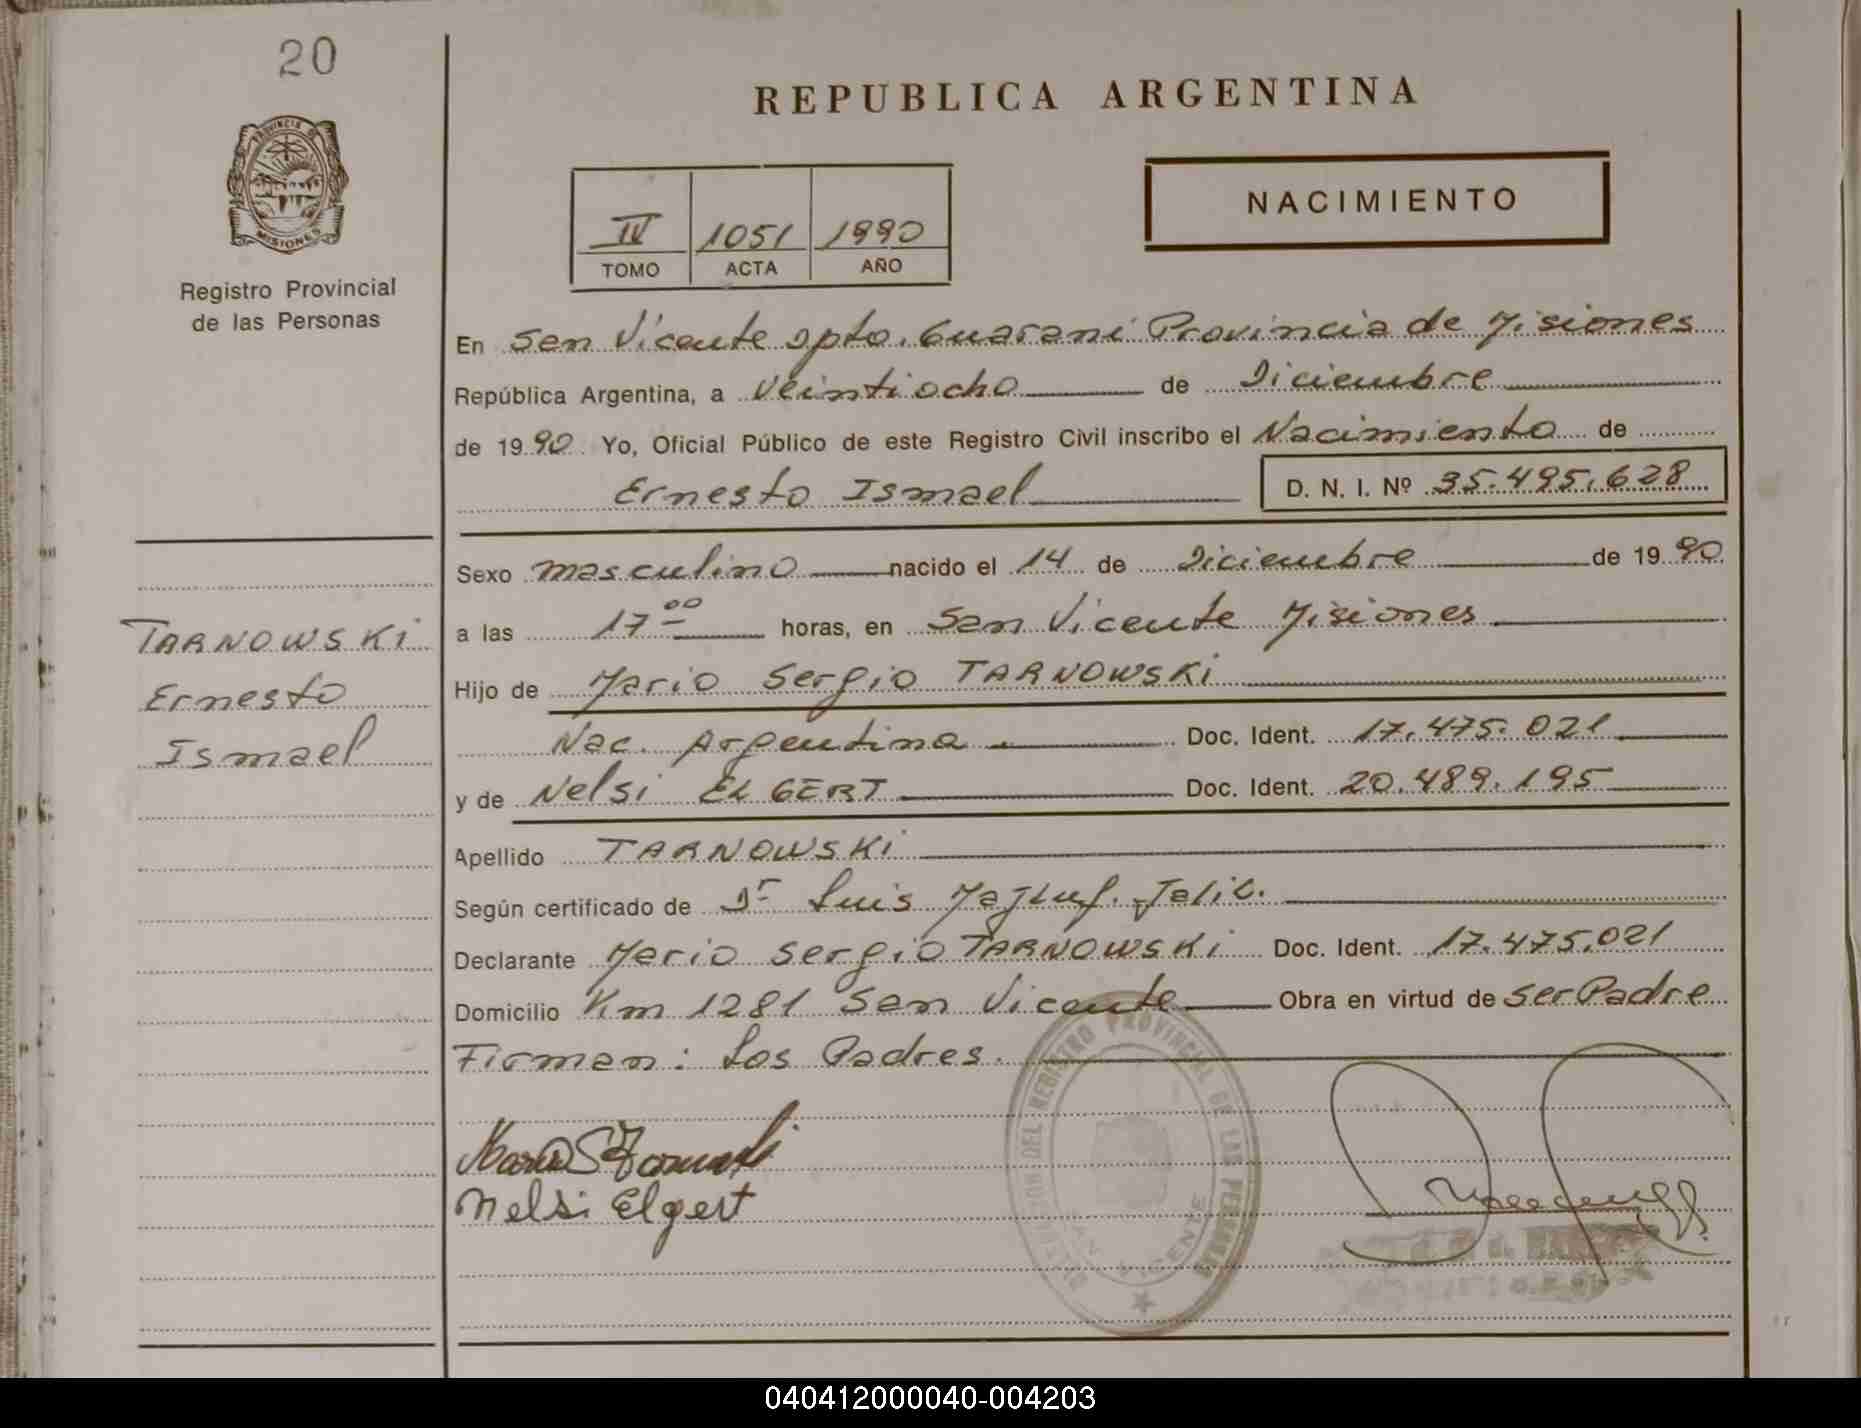 20
REPUBLICA ARGENTINA
PROVINCIA DE
MISIONES
Registro Provincial
de las Personas
NACIMIENTO
IV 1051 1990
TOMO ACTA AÑO
En San Vicente Dpto. Guaraní Provincia de Misiones
República Argentina, a Veintiocho de Diciembre
de 1990 Yo, Oficial Público de este Registro Civil inscribo el Nacimiento de
Ernesto Ismael D. N. I. Nº 35.495.628
Sexo masculino nacido el 14 de Diciembre de 1990
a las 17 00 horas, en San Vicente Misiones
Hijo de Mario Sergio TARNOWSKI
Nac. Argentina Doc. Ident. 17.475.021
y de Nelsi ELGERT Doc. Ident. 20.489.195
Apellido TARNOWSKI
Según certificado de Dr Luis Majluf. Jalil.
Declarante Mario Sergio TARNOWSKI Doc. Ident. 17.475.021
Domicilio Km 1281 San Vicente Obra en virtud de ser Padre
Firman: Los Padres.
TARNOWSKI
Ernesto
Ismael
Nelsi Elgert
DEL REGISTRO PROVINCIAL DE LAS PERSONAS
SAN VICENTE
040412000040-004203